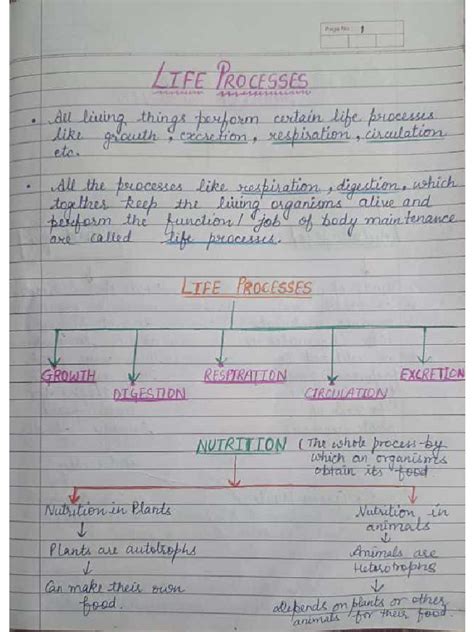 Page No. 1
LIFE PROCESSES
• All living things perform certain life processes
like growth, excretion, respiration, circulation
etc.
• All the processes like respiration, digestion, which
together keep the living organisms alive and
perform the function/ job of body maintenance
are called life processes.
LIFE PROCESSES
GROWTH
DIGESTION
RESPIRATION
CIRCULATION
EXCRETION
NUTRITION (The whole process by
which an organisms
obtain its food
Nutrition in Plants
↓
Plants are autotrophs
↓
Can make their own
food.
Nutrition in
animals
↓
Animals are
Heterotrophs
↓
depends on plants or other
animals for their food